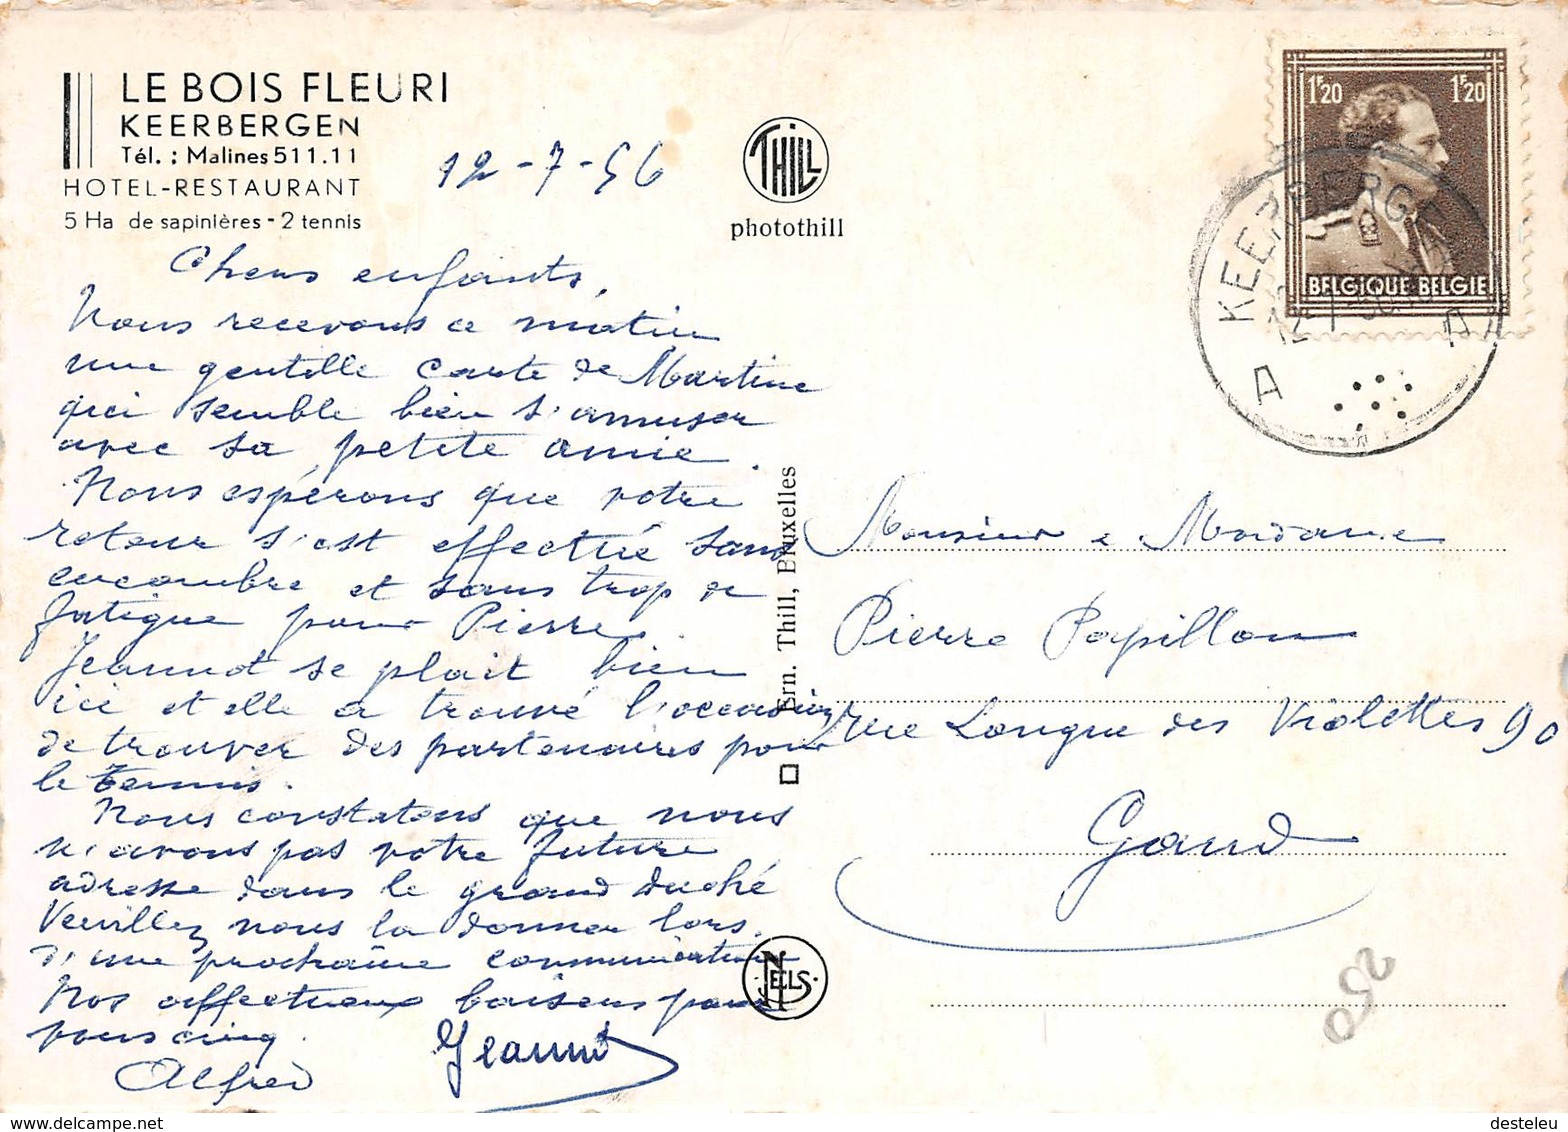 LE BOIS FLEURI
KEERBERGEN
Tél. : Malines 511.11
HOTEL-RESTAURANT
5 Ha de sapinières - 2 tennis
12-7-56
THILL
photothill
1F20 1F20
BELGIQUE BELGIE
KEERBERGEN
A A
Chers enfants,
Nous recevons ce matin
une gentille carte de Martine
qui semble bien s'amuser
avec sa petite amie.
Nous espérons que votre
retour s'est effectué sans
encombre et sans trop de
fatigue pour Pierre.
Jeannot se plait bien
ici et elle a trouvé l'occasion
de trouver des partenaires pour
le tennis.
Nous constatons que nous
n'avons pas votre future
adresse dans le grand duché
Veuillez nous la donner lors
d'une prochaine communication
Nos affectueux baisers pour
vous cinq.
Alfred Jeannot
Ern. Thill, Bruxelles
NELS
Monsieur e Madame
Pierre Papillon
rue Longue des Violettes 90
Gand
250
desteleu